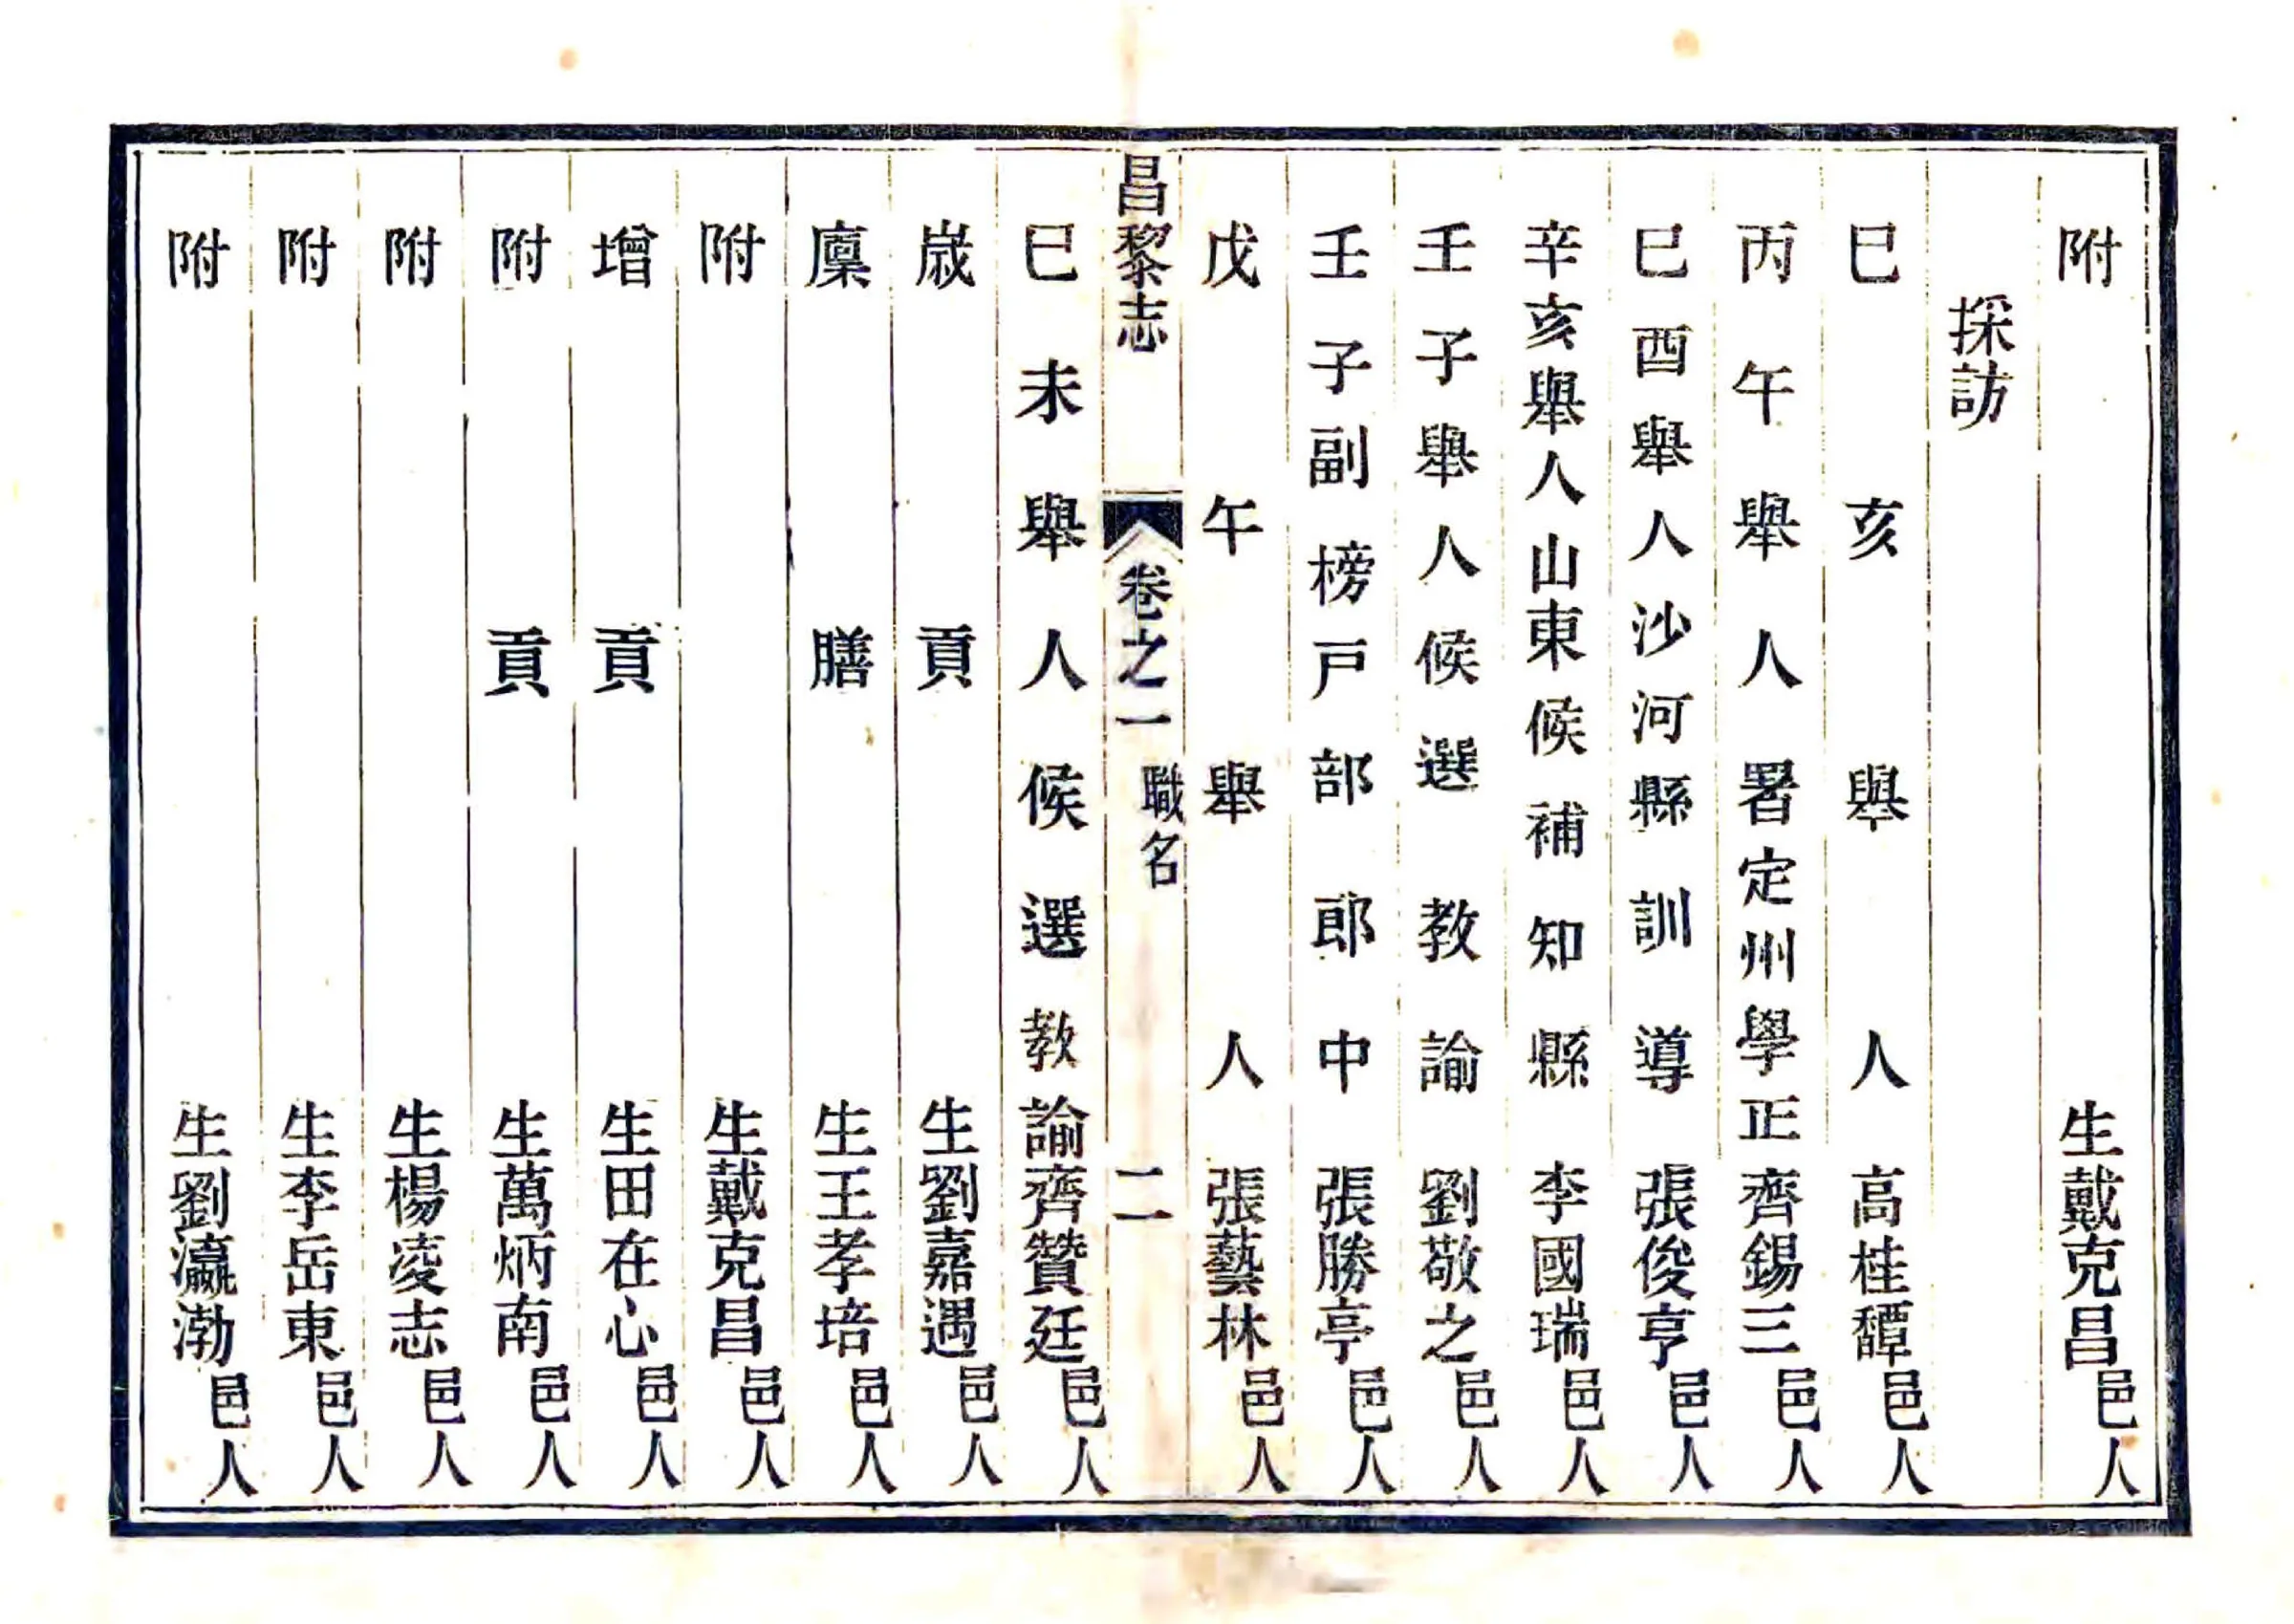 附生戴克昌邑人
採訪
巳亥舉人高桂邑人
丙午舉人署定州學正齊錫三邑人
巳酉舉人沙河縣訓導張俊亨邑人
辛亥舉人山東候補知縣李國瑞邑人
壬子舉人候選教諭劉敬之邑人
壬子副榜戸部郎中張勝亭邑人
戊午舉人張藝林邑人
昌黎志卷之一職名二
巳未舉人候選教諭齊贊廷邑人
嵗貢生劉嘉遇邑人
廩膳生王孝培邑人
附生戴克昌邑人
增貢生田在心邑人
附貢生萬炳南邑人
附生楊凌志邑人
附生李岳東邑人
附生劉瀛渤邑人